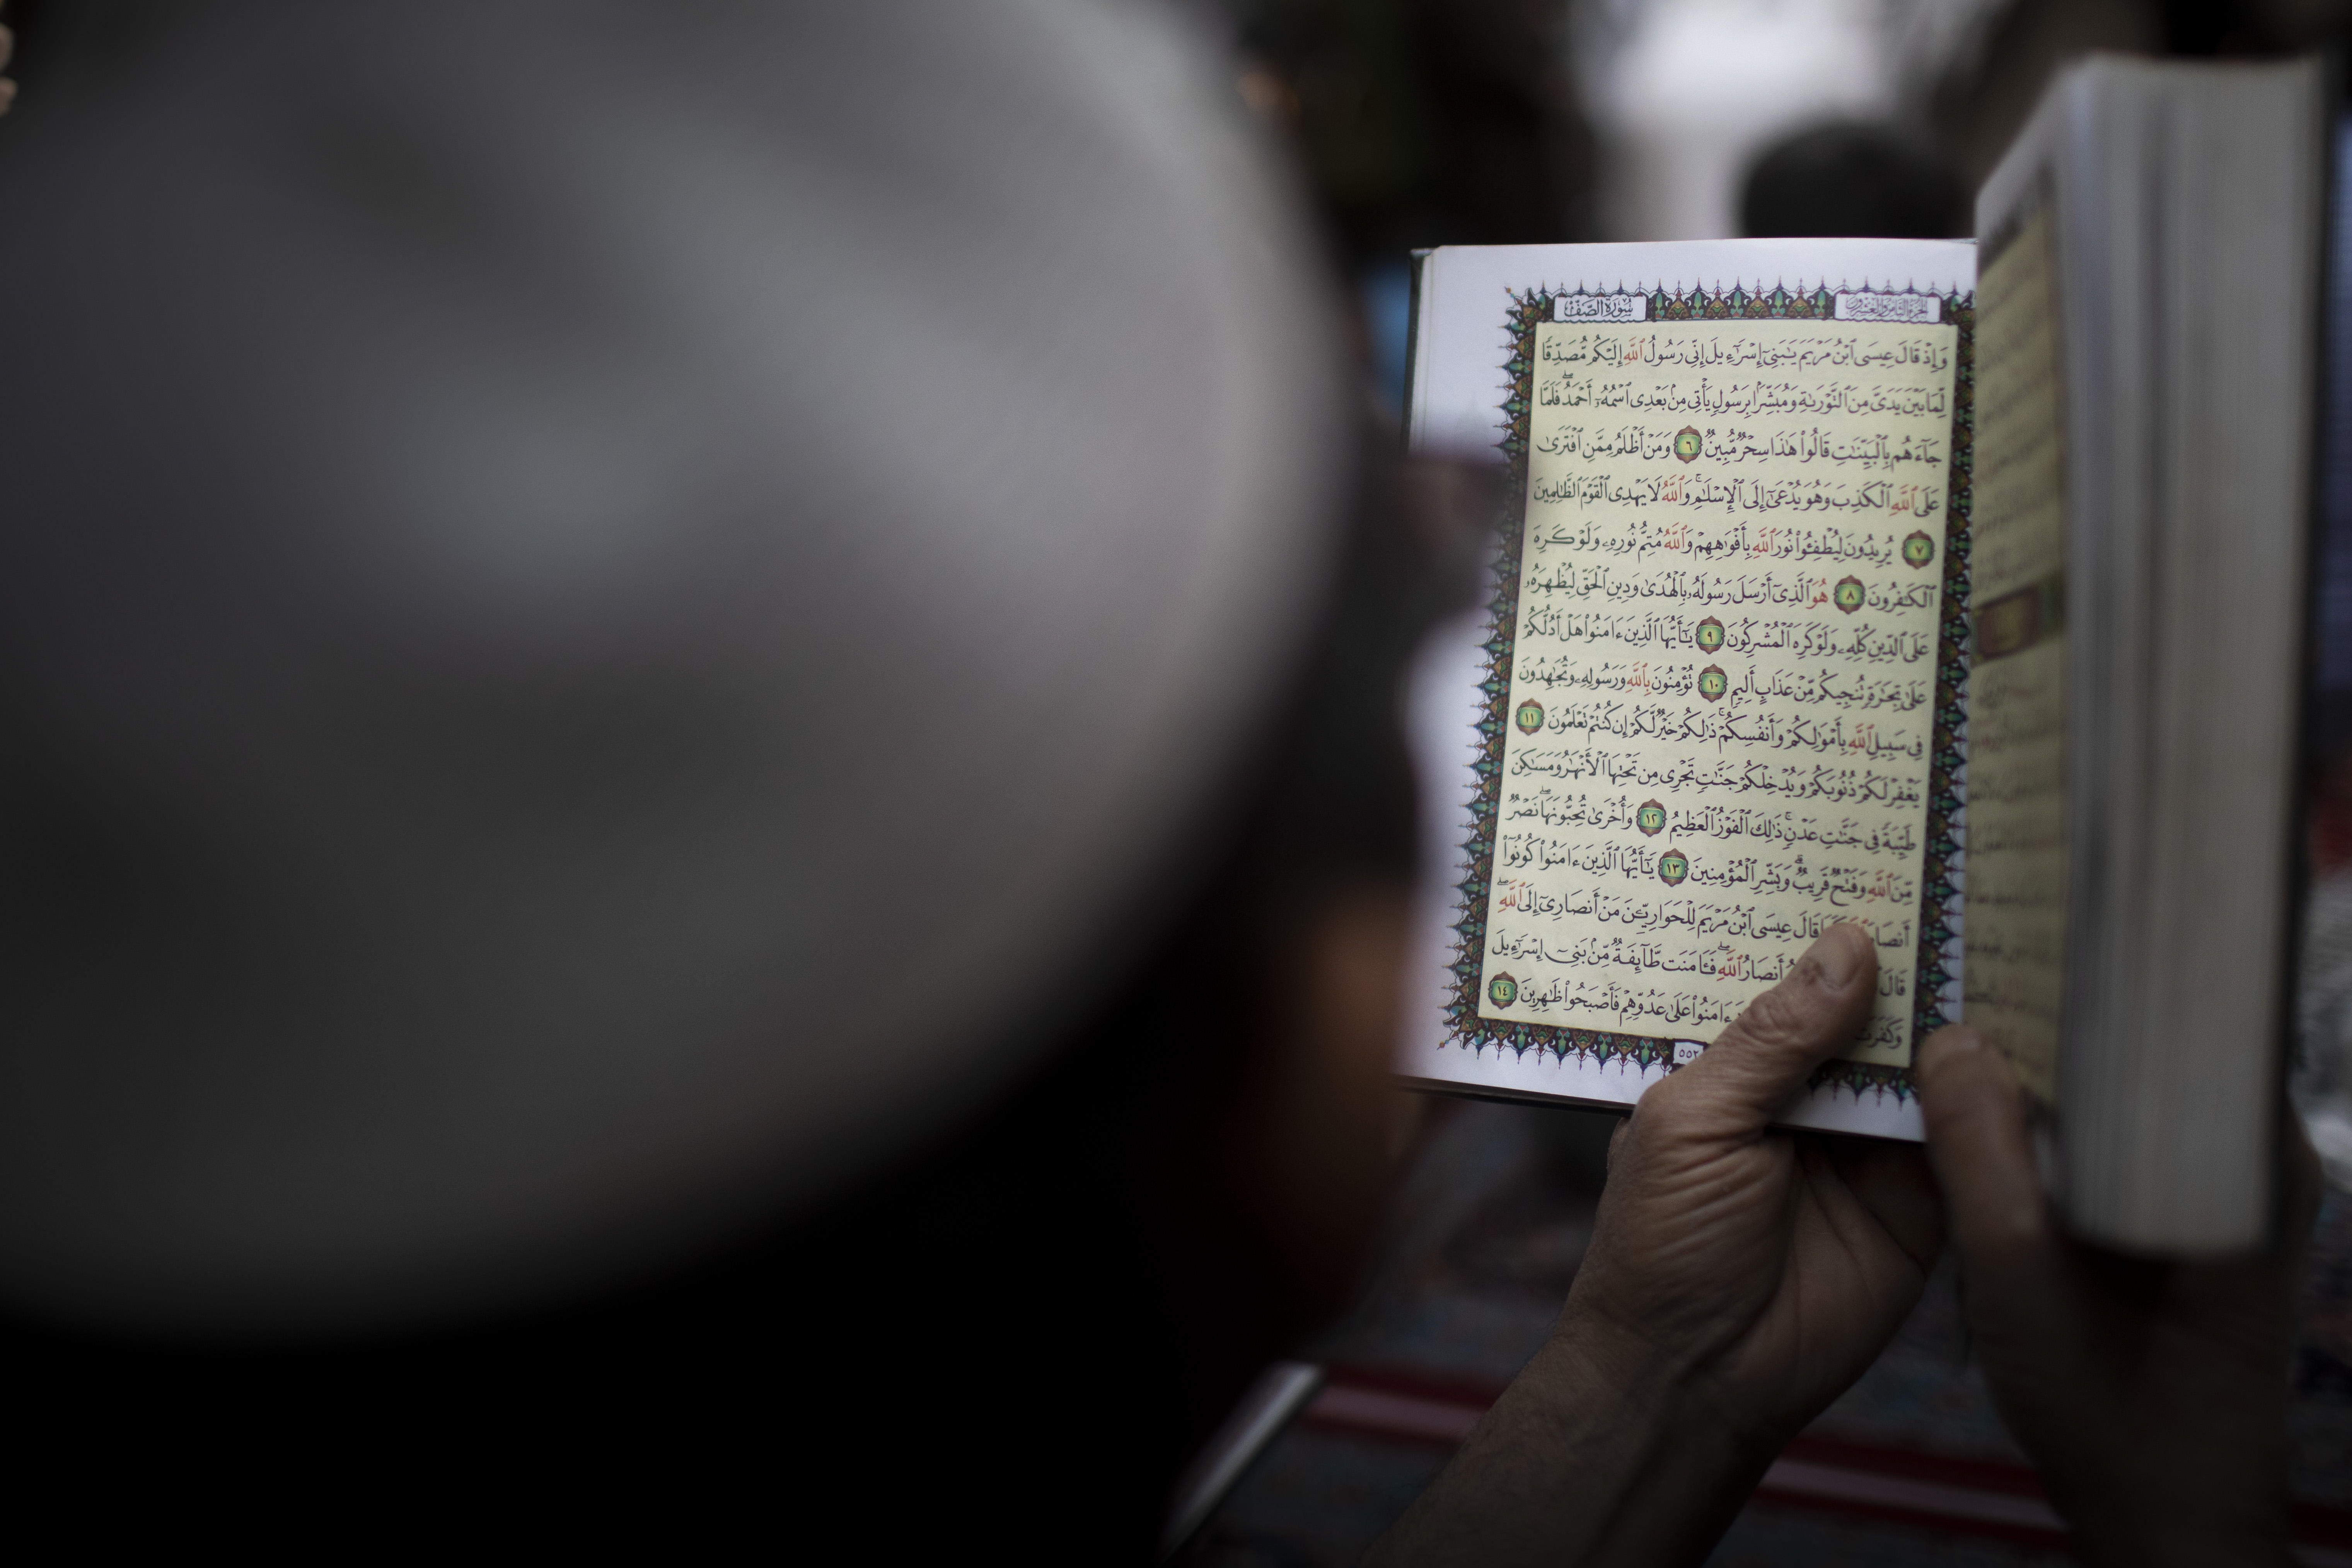 الجزء الثامن والعشرون
سُورَةُ الصَّفِّ
وَإِذْ قَالَ عِيسَى ٱبْنُ مَرْيَمَ يَٰبَنِىٓ إِسْرَٰٓءِيلَ إِنِّى رَسُولُ ٱللَّهِ إِلَيْكُم مُّصَدِّقًا
لِّمَا بَيْنَ يَدَىَّ مِنَ ٱلتَّوْرَىٰةِ وَمُبَشِّرًۢا بِرَسُولٍ يَأْتِى مِنۢ بَعْدِى ٱسْمُهُۥٓ أَحْمَدُ ۖ فَلَمَّا
جَآءَهُم بِٱلْبَيِّنَٰتِ قَالُوا۟ هَٰذَا سِحْرٌ مُّبِينٌ ٦ وَمَنْ أَظْلَمُ مِمَّنِ ٱفْتَرَىٰ
عَلَى ٱللَّهِ ٱلْكَذِبَ وَهُوَ يُدْعَىٰٓ إِلَى ٱلْإِسْلَٰمِ ۚ وَٱللَّهُ لَا يَهْدِى ٱلْقَوْمَ ٱلظَّٰلِمِينَ
٧ يُرِيدُونَ لِيُطْفِـُٔوا۟ نُورَ ٱللَّهِ بِأَفْوَٰهِهِمْ وَٱللَّهُ مُتِمُّ نُورِهِۦ وَلَوْ كَرِهَ
ٱلْكَٰفِرُونَ ٨ هُوَ ٱلَّذِىٓ أَرْسَلَ رَسُولَهُۥ بِٱلْهُدَىٰ وَدِينِ ٱلْحَقِّ لِيُظْهِرَهُۥ
عَلَى ٱلدِّينِ كُلِّهِۦ وَلَوْ كَرِهَ ٱلْمُشْرِكُونَ ٩ يَٰٓأَيُّهَا ٱلَّذِينَ ءَامَنُوا۟ هَلْ أَدُلُّكُمْ
عَلَىٰ تِجَٰرَةٍ تُنجِيكُم مِّنْ عَذَابٍ أَلِيمٍ ١٠ تُؤْمِنُونَ بِٱللَّهِ وَرَسُولِهِۦ وَتُجَٰهِدُونَ
فِى سَبِيلِ ٱللَّهِ بِأَمْوَٰلِكُمْ وَأَنفُسِكُمْ ۚ ذَٰلِكُمْ خَيْرٌ لَّكُمْ إِن كُنتُمْ تَعْلَمُونَ ١١
يَغْفِرْ لَكُمْ ذُنُوبَكُمْ وَيُدْخِلْكُمْ جَنَّٰتٍ تَجْرِى مِن تَحْتِهَا ٱلْأَنْهَٰرُ وَمَسَٰكِنَ
طَيِّبَةً فِى جَنَّٰتِ عَدْنٍ ۚ ذَٰلِكَ ٱلْفَوْزُ ٱلْعَظِيمُ ١٢ وَأُخْرَىٰ تُحِبُّونَهَا ۖ نَصْرٌ
مِّنَ ٱللَّهِ وَفَتْحٌ قَرِيبٌ ۗ وَبَشِّرِ ٱلْمُؤْمِنِينَ ١٣ يَٰٓأَيُّهَا ٱلَّذِينَ ءَامَنُوا۟ كُونُوٓا۟
أَنصَارَ قَالَ عِيسَى ٱبْنُ مَرْيَمَ لِلْحَوَارِيِّـۧنَ مَنْ أَنصَارِىٓ إِلَى ٱللَّهِ ۖ
قَالَ أَنصَارُ ٱللَّهِ ۖ فَـَٔامَنَت طَّآئِفَةٌ مِّنۢ بَنِىٓ إِسْرَٰٓءِيلَ
وَكَفَرَت ءَامَنُوا۟ عَلَىٰ عَدُوِّهِمْ فَأَصْبَحُوا۟ ظَٰهِرِينَ ١٤
٥٥٢